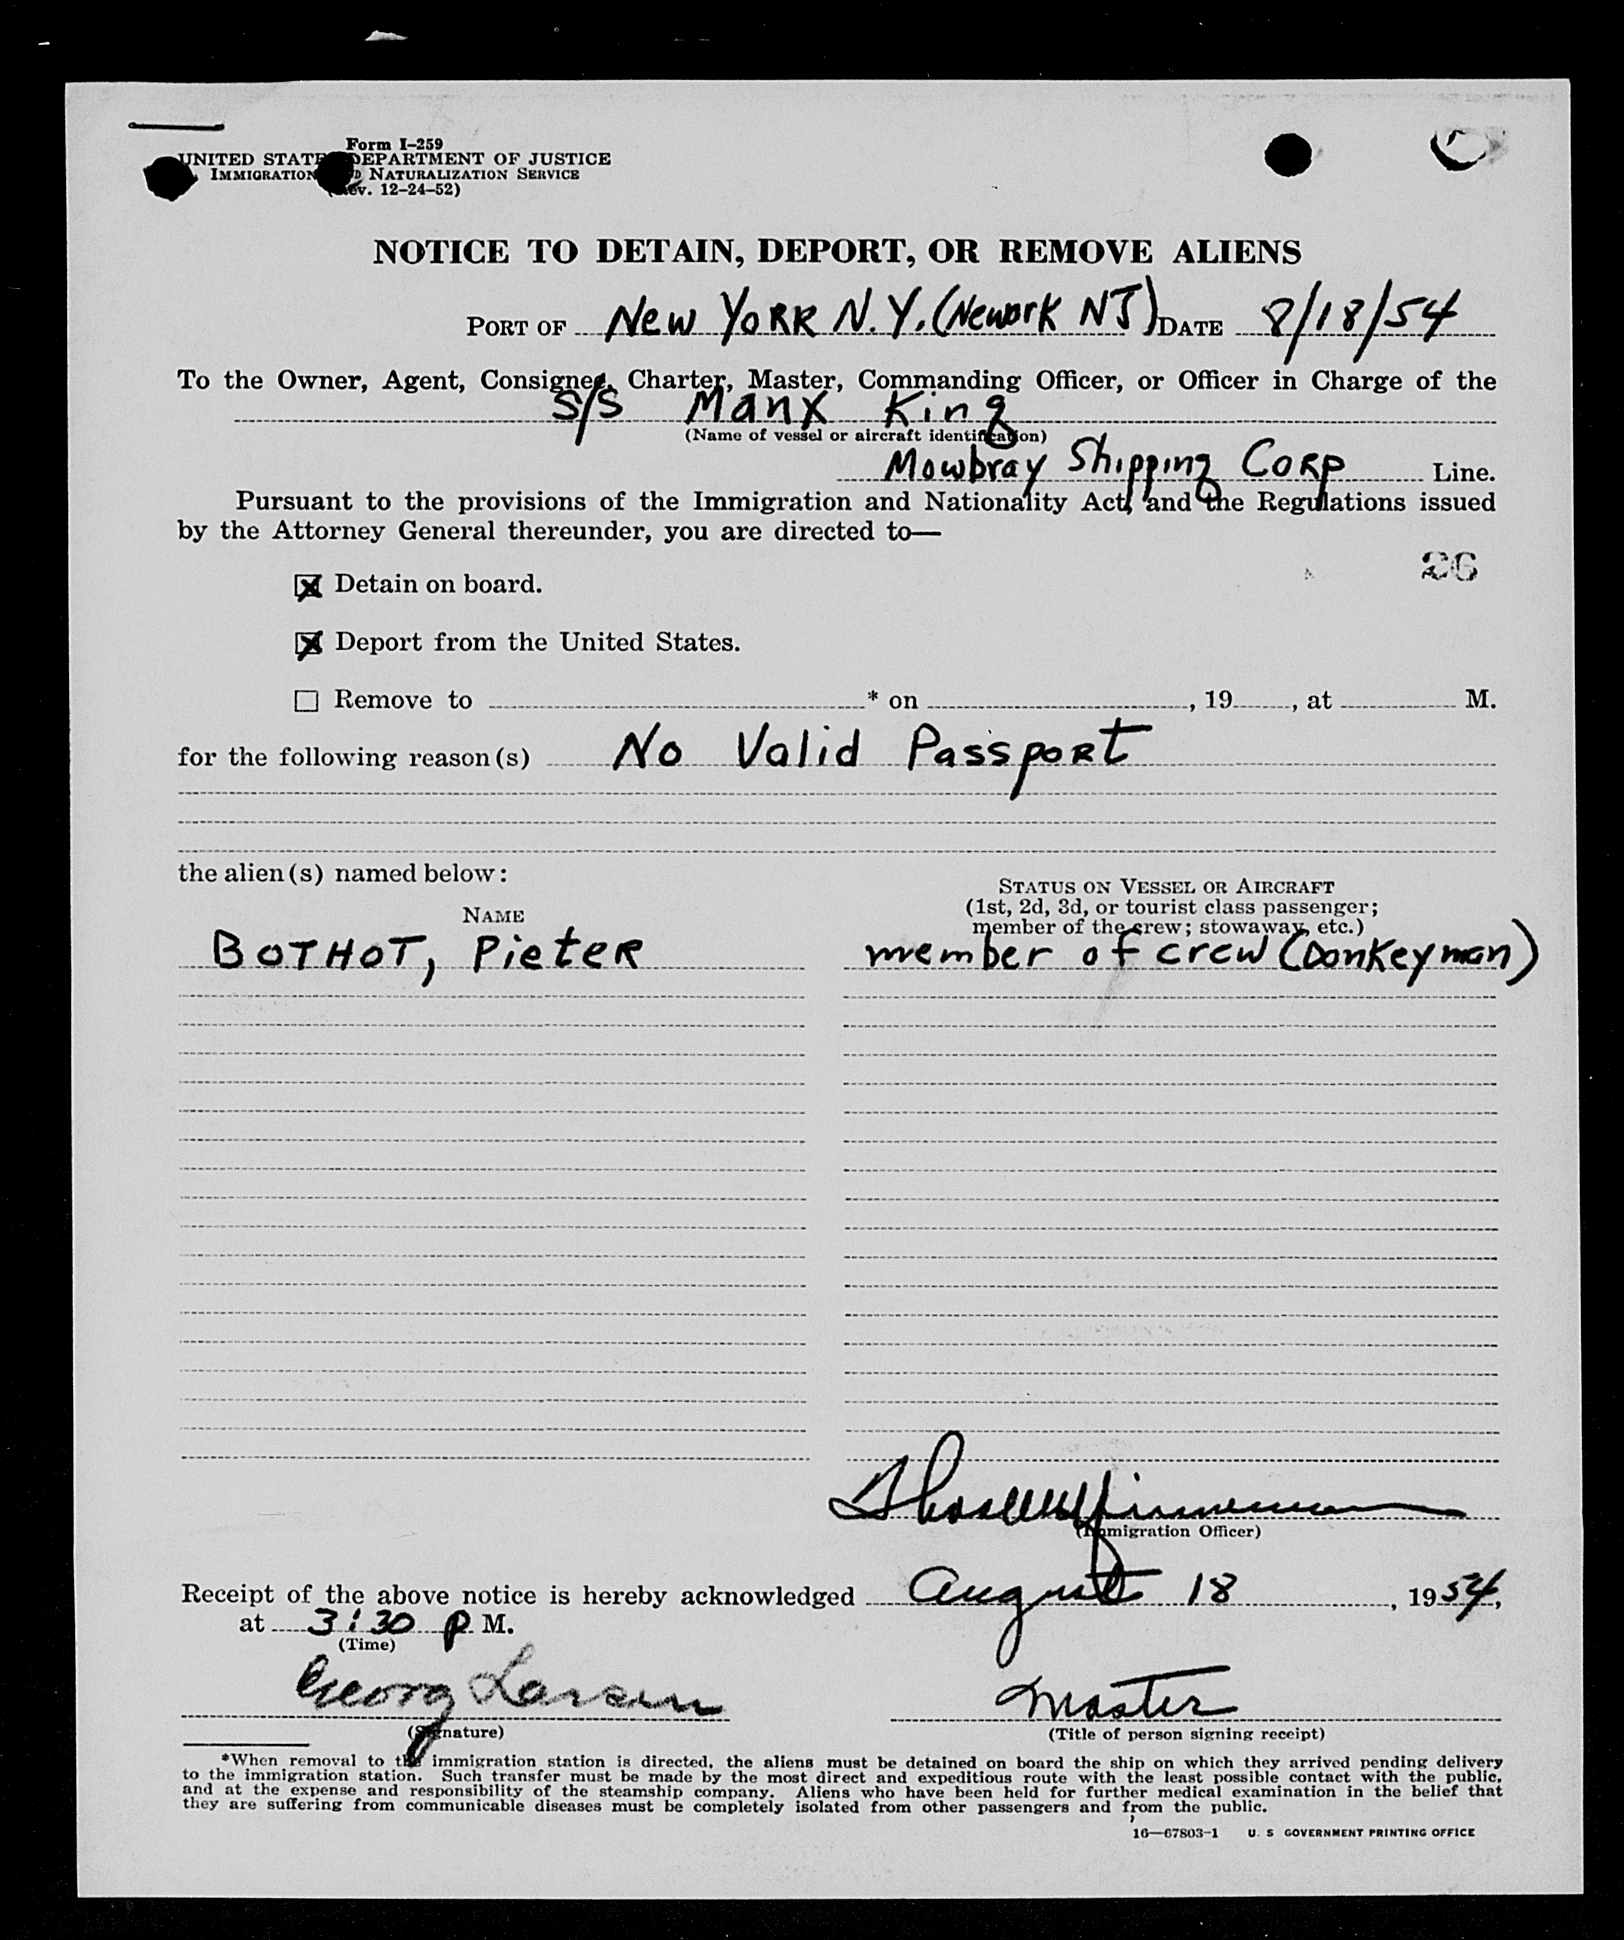 Form I-259
UNITED STATES DEPARTMENT OF JUSTICE
IMMIGRATION AND NATURALIZATION SERVICE
(Rev. 12-24-52)
NOTICE TO DETAIN, DEPORT, OR REMOVE ALIENS
PORT OF New York N.Y. (Newark NJ) DATE 8/18/54
To the Owner, Agent, Consignee, Charter, Master, Commanding Officer, or Officer in Charge of the
S/S Manx King
(Name of vessel or aircraft identification)
Mowbray Shipping Corp Line.
Pursuant to the provisions of the Immigration and Nationality Act, and the Regulations issued
by the Attorney General thereunder, you are directed to—
26
☒ Detain on board.
☒ Deport from the United States.
☐ Remove to * on , 19 , at M.
for the following reason(s) No Valid Passport
the alien(s) named below:
NAME
STATUS ON VESSEL OR AIRCRAFT
(1st, 2d, 3d, or tourist class passenger;
member of the crew; stowaway, etc.)
BOTHOT, Pieter member of crew (Donkeyman)
(Immigration Officer)
Receipt of the above notice is hereby acknowledged August 18, 1954,
at 3:30 P. M.
(Time)
Georg Larsen Master
(Signature) (Title of person signing receipt)
*When removal to the immigration station is directed, the aliens must be detained on board the ship on which they arrived pending delivery
to the immigration station. Such transfer must be made by the most direct and expeditious route with the least possible contact with the public,
and at the expense and responsibility of the steamship company. Aliens who have been held for further medical examination in the belief that
they are suffering from communicable diseases must be completely isolated from other passengers and from the public.
16—67803-1 U. S GOVERNMENT PRINTING OFFICE